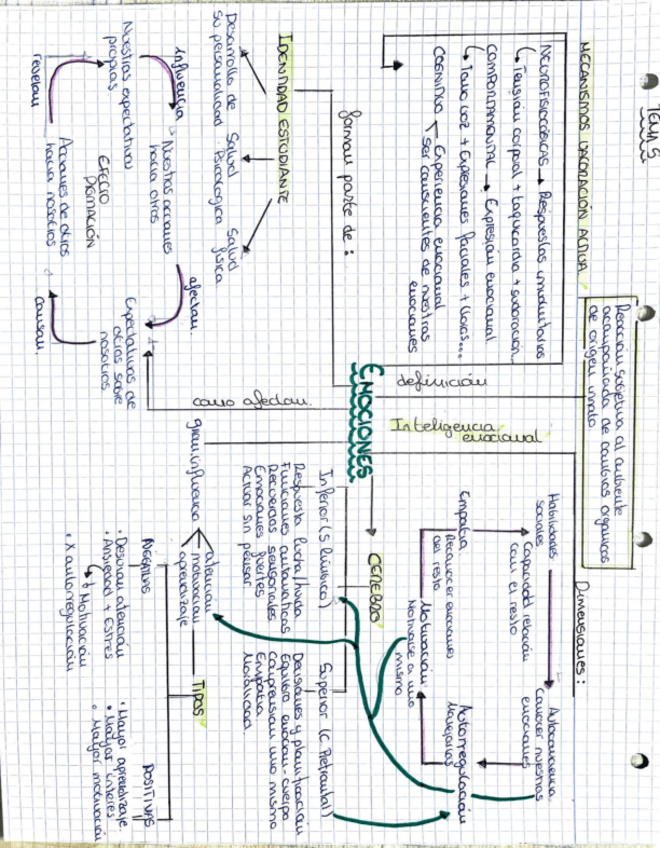 Tema 9
Reacción subjetiva al ambiente
acompañada de cambios orgánicos
de origen innato
MECANISMOS VALORACIÓN ACTIVA
NEUROFISIOLÓGICAS → Respuestas involuntarias
Tensión corporal + taquicardia + sudoración...
COMPORTAMENTAL → Expresión emocional
Tono voz + Expresiones faciales + lloros...
COGNITIVA
Experiencia emocional
Ser conscientes de nuestras
emociones
definición
Inteligencia
emocional
Dimensiones:
Habilidades
sociales
Capacidad relación
con el resto
Autoconciencia
Conocer nuestras
emociones
Empatía
Reconocer emociones
del resto
Motivación
Motivarse a uno
mismo
Autorregulación
Manejarlas
EMOCIONES
forman parte de:
IDENTIDAD ESTUDIANTE
Desarrollo de
su personalidad
Salud
Psicológica
Salud
física
como afectan
influencia
Nuestras acciones
hacia otros
afectan
Expectativas de
otros sobre
nosotros
causan
Acciones de otros
hacia nosotros
revelan
Nuestras expectativas
propias
EFECTO
PIGMALIÓN
CEREBRO
Inferior (S límbico)
Respuesta lucha/huida
Funciones automáticas
Recuerdos sensoriales
Emociones fuertes
Actuar sin pensar
Superior (C Prefrontal)
Decisiones y planificación
Equilibrio emoción-cuerpo
Comprensión uno mismo
Empatía
Moralidad
gran influencia
atención
motivación
aprendizaje
TIPOS
NEGATIVAS
• Desvían atención
• Ansiedad + Estrés
↓ Motivación
• X autorregulación
POSITIVAS
• Mayor aprendizaje
• Mayor interés
• Mayor motivación